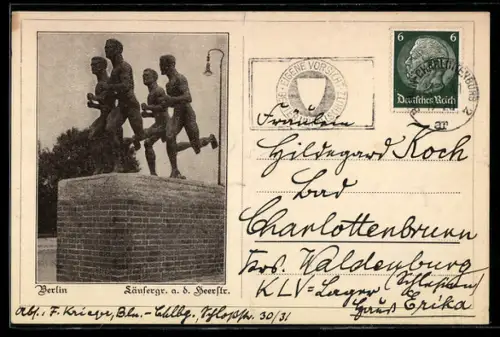 6 6
Deutsches Reich
EIGENE VORSICHT
CHARLOTTENBURG 2
Fräulein
Hildegard Koch
Bad
Charlottenbrunn
Krs. Waldenburg
KLV = Lager (Schlesien)
Haus Erika
Berlin Läufergr. a. d. Heerstr.
Abs.: F. Kriege, Bln.-Chlbg., Schloßstr. 30/31